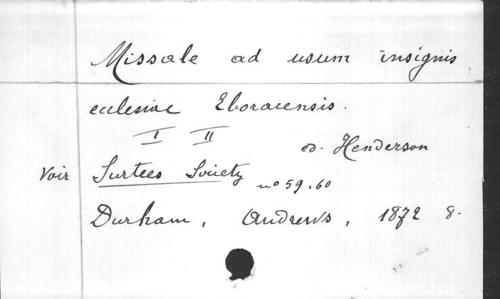 Missale ad usum insignis
ecclesiae Eboracensis.
I II
ed. Henderson
Voir Surtees Society nº 59.60
Durham, Andrews, 1872 8.